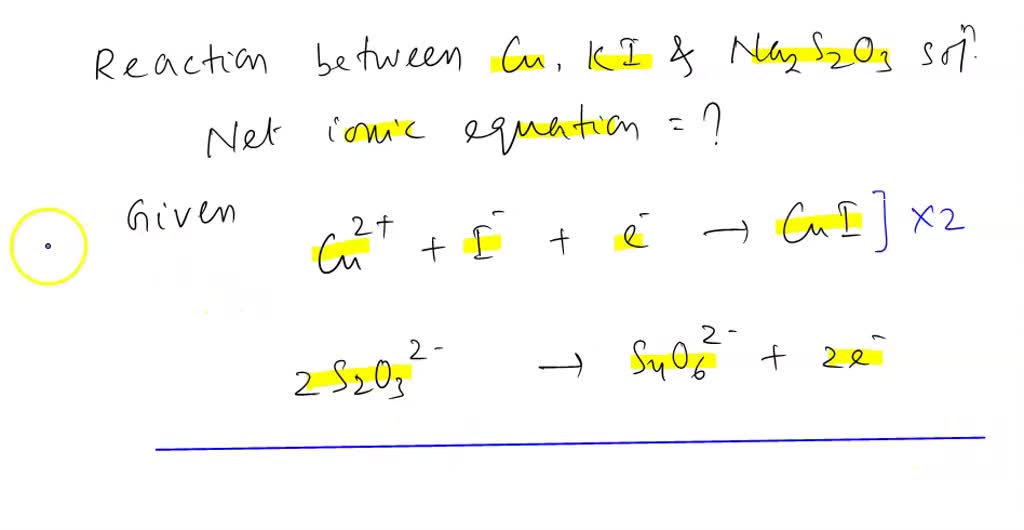 Reaction between Cu, KI & Na₂S₂O₃ solⁿ.
Net ionic equation = ?
Given
Cu²⁺ + I⁻ + e⁻ → CuI] ×2
2S₂O₃²⁻ → S₄O₆²⁻ + 2e⁻